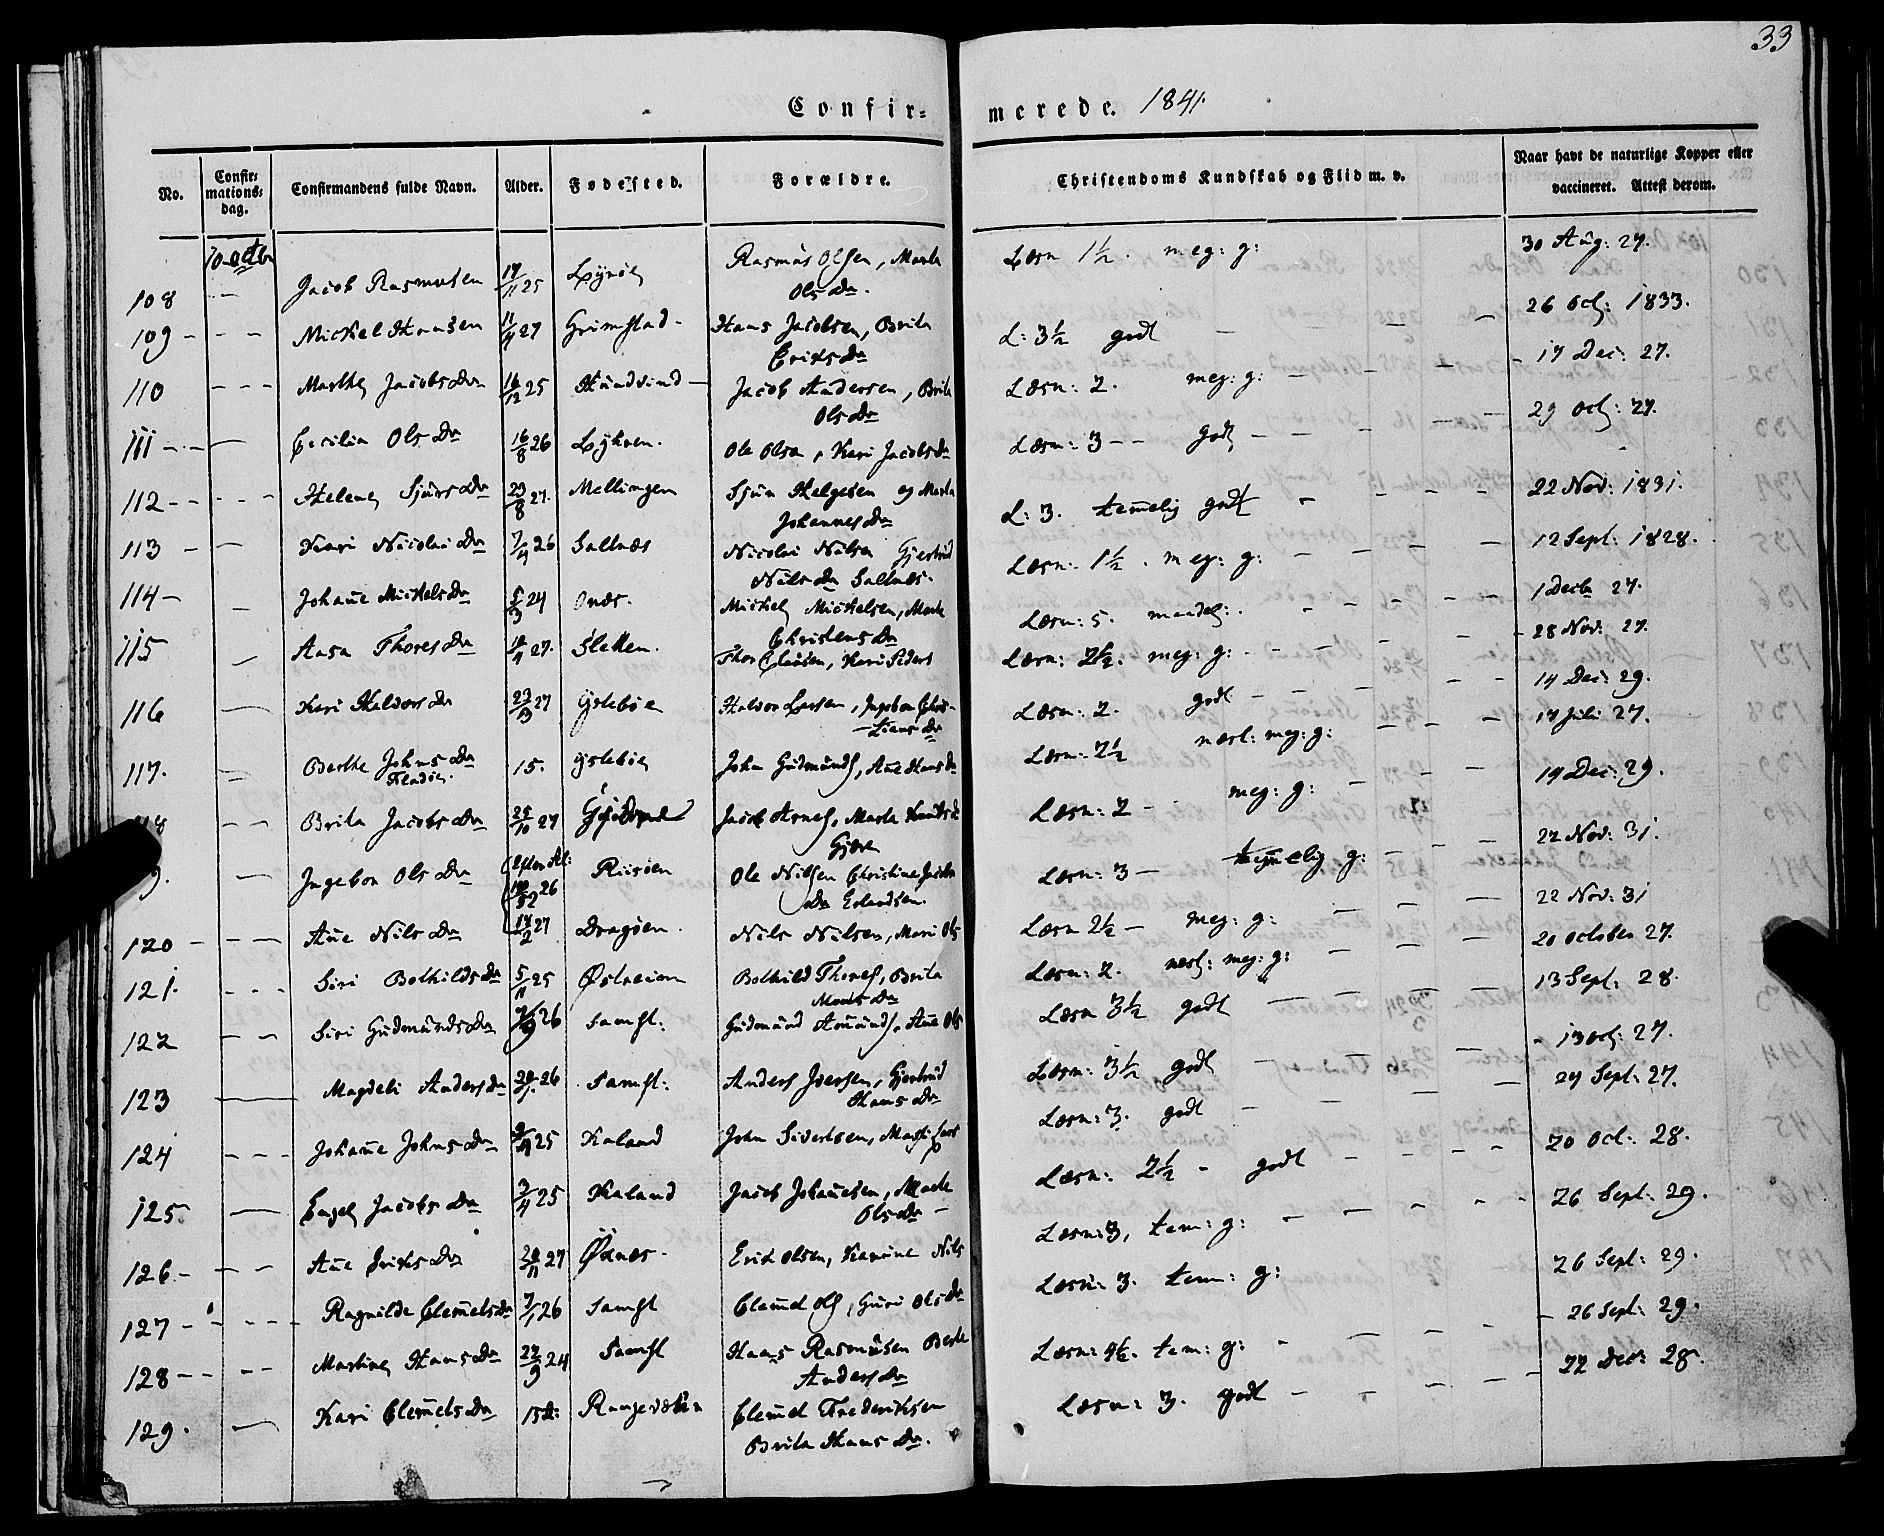 33
Confir- merede. 1841.
No. Confir-mations-dag. Confirmandens fulde Navn. Alder. Fødested. Forældre. Christendoms Kundskab og Flid m. v. Naar havt de naturlige Kopper eller vaccineret. Attest derom.
10 octbr
108 — Jacob Rasmusen 25 Rasmus Olsen, Marta Ols Dr. Læsn 1½. meg: g: 30 Aug: 27.
109 - - - Mickel Hansen 11/4 27 Grimstad - Hans Jacobsen, Brita Eriks Dr L: 3½ godt — 26 Oct: 1833.
110 - - - Marthe Jacobs Dr 16/12 25 Hundvind — Jacob Andersen, Brita Ols Dr Læsn: 2. meg: g: — - 17 Dec: 27.
111 - - — Cecilia Ols Dr 16/8 26 Ole Olsen, Kari Jacobs Dr Læsn: 3 - - godt - 29 Oct: 27.
112 - - - - - Helene Sjurs Dr 23/8 27. Mellingen Sjur Helgesen og Marta Johannes Dr L: 3. temelig godt - 22 Nov: 1831.
113 - — Kari Nicolai Dr 7/4 26 Saltnæs Nicolai Nilsen Gjertrud Nils Dr Saltnæs. Læsn: 1½. meg: g: 12 Sept: 1828.
114 - — Johanne Mickels Dr 24 Onæs. Mickel Mickelsen, Marte Christens Dr Læsn: 5. maadel: 1 Decbr 27.
115 — Aasa Thores Dr 27. Sletten. Thor Clausen, Kari Peders Læsn: 2½. meg: g: - 28 Nov: 27.
116 — Kari Halvors Dr 27 Halvor Larsen, Ingebor Chris-tians Dr Læsn: 2. godt - 14 Dec: 29.
117. — Berthe Johns Dr 15. John Gudmunds, Ane Hans Dr Læsn: 2½ næst: meg: g: 17 Juli 27.
118 - - Brita Jacobs Dr 25/10 27 Jacob Arnes, Marta Knuds Dr Læsn: 2 - meg: g: - 19 Dec: 29.
9. — Ingebor Ols Dr 26 Risøen Ole Nilsen Christine Jacobs Dr Erlandsen. Læsn: 3 — temelig g: - 22 Nov: 31.
120 - - — Ane Nils Dr 27 Dragøen. Nils Nilsen, Mari Ols Læsn 2½ — meg: g: 22 Nov: 31
121. - - - Siri Bothilds Dr 5/11 25 Østreim Bothild Thores, Brita Mons Dr Læsn: 2. næst: meg: g: 20 October 27.
122 - - Siri Gudmunds Dr 26 Samst: Gudmund Amunds, Ane Ols Læsn 3½ godt — 13 Sept: 28.
123 — Magdeli Anders Dr 26 Samst: Anders Iversen, Gjertrud Hans Dr Læsn: 3½ godt — - 13 Oct: 27.
124 - - - Johanne Johns Dr 25 Kaland John Sivertsen, Læsn: 3. godt — 24 Sept: 27.
125 — Engel Jacobs Dr 3/4 25 Kaland Jacob Johanesen, Marte Ols Dr - Læsn: 2½ - godt — 20 Oct: 28.
126 - - - Ane Eriks Dr 27 Øxnæs. Erik Olsen, Karine Nils Læsn: 3, tem: g: 26 Sept: 29.
127 - - - - Ragnilde Clemets Dr 7/1 26 Samst Clemet Ols, Guri Ols Dr Læsn: 3. tem: g: 26 Sept: 29.
128 - - - - Martine Hans Dr 22/9 24 Samst Hans Rasmusen Berte Anders Dr Læsn: 4½. tem: g: - - 26 Sept: 29.
129. — Kari Clemets Dr Clemet Frederiksen Brita Hans Dr. Læsn: 3. godt — 22 Dec: 28.